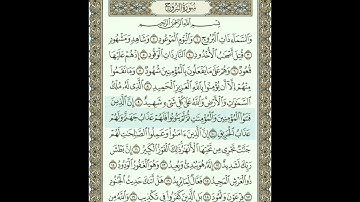 سُورَةُ البُرُوجِ
بِسْمِ اللَّهِ الرَّحْمَٰنِ الرَّحِيمِ
وَالسَّمَاءِ ذَاتِ الْبُرُوجِ ١ وَالْيَوْمِ الْمَوْعُودِ ٢ وَشَاهِدٍ وَمَشْهُودٍ
٣ قُتِلَ أَصْحَابُ الْأُخْدُودِ ٤ النَّارِ ذَاتِ الْوَقُودِ ٥ إِذْ هُمْ عَلَيْهَا
قُعُودٌ ٦ وَهُمْ عَلَىٰ مَا يَفْعَلُونَ بِالْمُؤْمِنِينَ شُهُودٌ ٧ وَمَا نَقَمُوا
مِنْهُمْ إِلَّا أَن يُؤْمِنُوا بِاللَّهِ الْعَزِيزِ الْحَمِيدِ ٨ الَّذِي لَهُ مُلْكُ
السَّمَاوَاتِ وَالْأَرْضِ وَاللَّهُ عَلَىٰ كُلِّ شَيْءٍ شَهِيدٌ ٩ إِنَّ الَّذِينَ
فَتَنُوا الْمُؤْمِنِينَ وَالْمُؤْمِنَاتِ ثُمَّ لَمْ يَتُوبُوا فَلَهُمْ عَذَابُ جَهَنَّمَ وَلَهُمْ
عَذَابُ الْحَرِيقِ ١٠ إِنَّ الَّذِينَ آمَنُوا وَعَمِلُوا الصَّالِحَاتِ لَهُمْ
جَنَّاتٌ تَجْرِي مِن تَحْتِهَا الْأَنْهَارُ ذَٰلِكَ الْفَوْزُ الْكَبِيرُ ١١ إِنَّ بَطْشَ
رَبِّكَ لَشَدِيدٌ ١٢ إِنَّهُ هُوَ يُبْدِئُ وَيُعِيدُ ١٣ وَهُوَ الْغَفُورُ الْوَدُودُ ١٤
ذُو الْعَرْشِ الْمَجِيدُ ١٥ فَعَّالٌ لِّمَا يُرِيدُ ١٦ هَلْ أَتَاكَ حَدِيثُ الْجُنُودِ
١٧ فِرْعَوْنَ وَثَمُودَ ١٨ بَلِ الَّذِينَ كَفَرُوا فِي تَكْذِيبٍ ١٩ وَاللَّهُ مِن